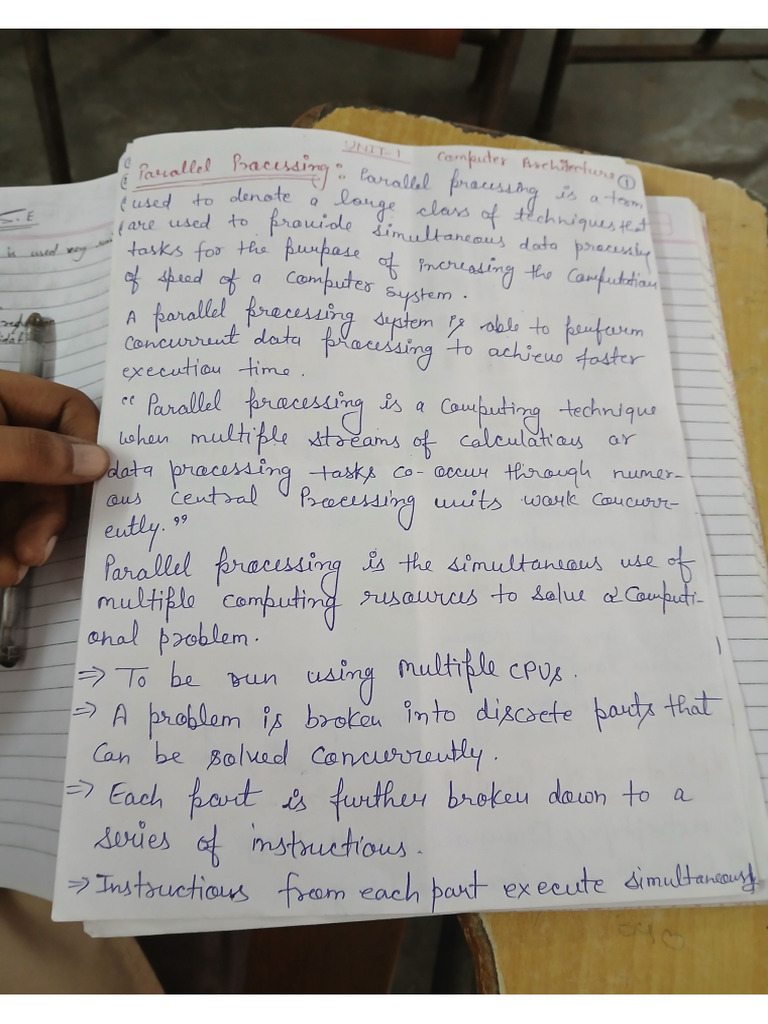 UNIT-1 Computer Architecture ①
Parallel Processing: Parallel processing is a term
used to denote a large class of techniques that
are used to provide simultaneous data processing
tasks for the purpose of increasing the computation
of speed of a computer system.
A parallel processing system is able to perform
concurrent data processing to achieve faster
execution time.
"Parallel processing is a computing technique
when multiple streams of calculations or
data processing tasks co-occur through numer-
ous central Processing units work concurr-
ently."
Parallel processing is the simultaneous use of
multiple computing resources to solve a computi-
onal problem.
⇒ To be run using multiple CPUs.
⇒ A problem is broken into discrete parts that
can be solved concurrently.
⇒ Each part is further broken down to a
series of instructions.
⇒ Instructions from each part execute simultaneously
.E
is used